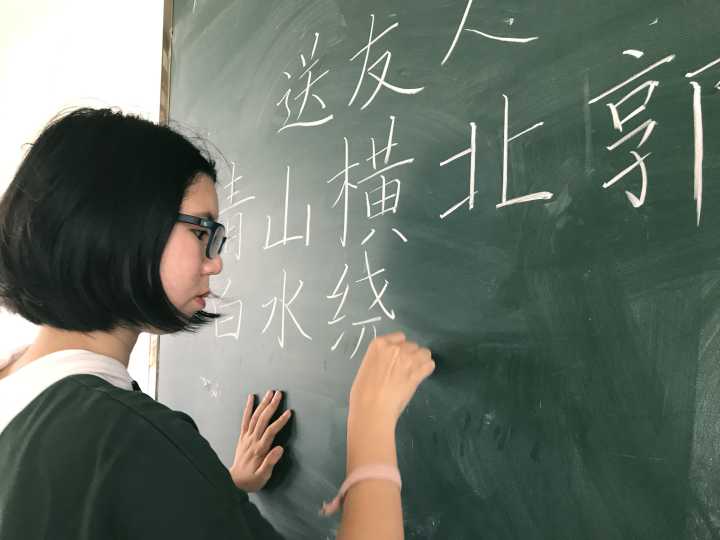 送友人
青山横北郭
白水绕